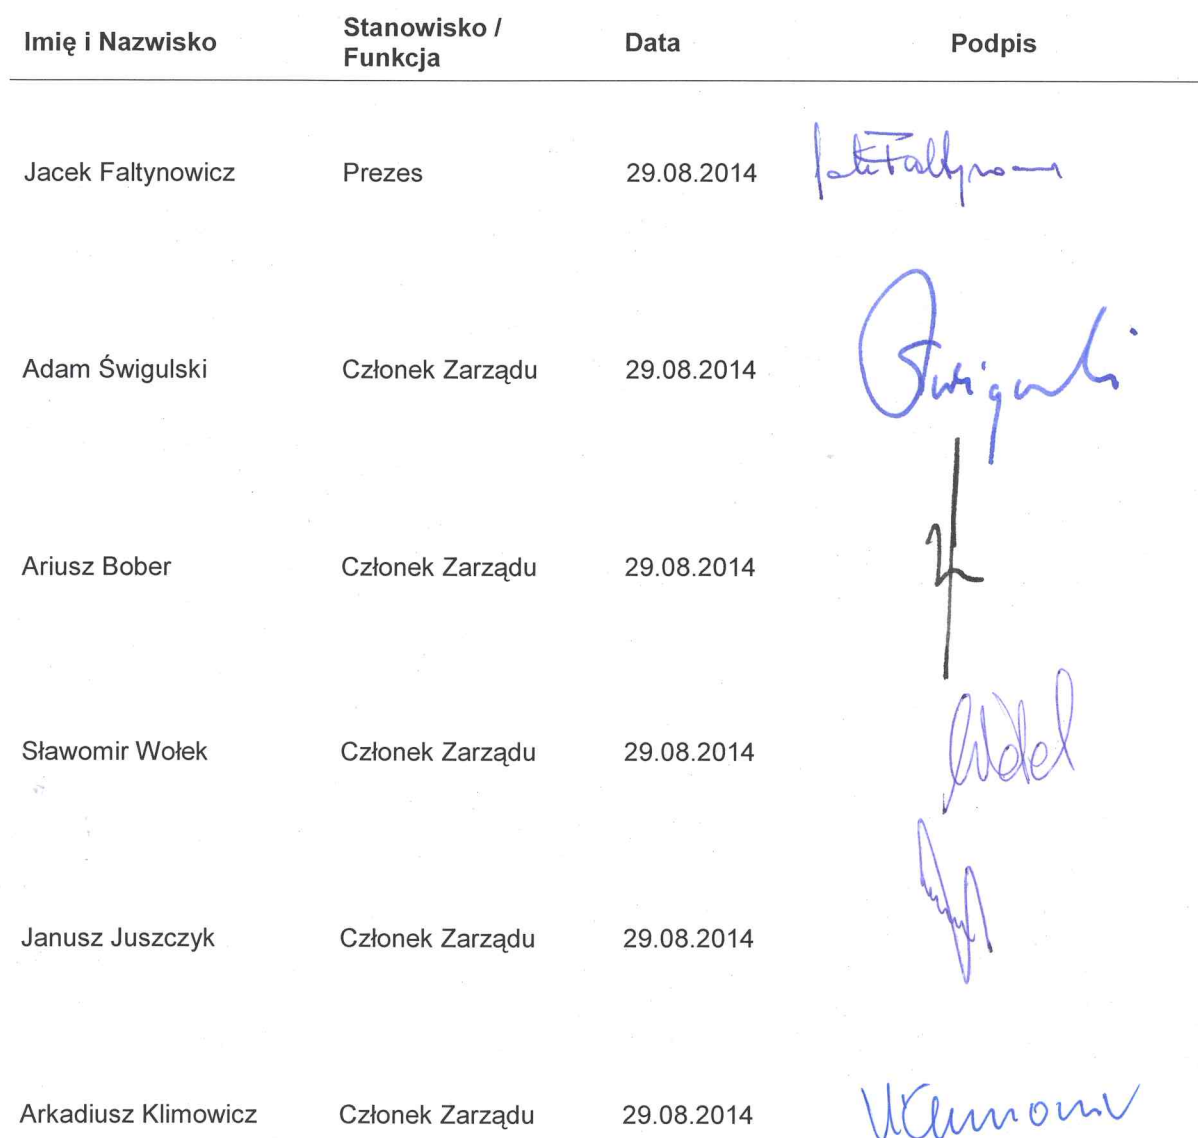 Imię i Nazwisko Stanowisko / Funkcja Data Podpis
Jacek Faltynowicz Prezes 29.08.2014
Adam Świgulski Członek Zarządu 29.08.2014
Ariusz Bober Członek Zarządu 29.08.2014
Sławomir Wołek Członek Zarządu 29.08.2014
Janusz Juszczyk Członek Zarządu 29.08.2014
Arkadiusz Klimowicz Członek Zarządu 29.08.2014